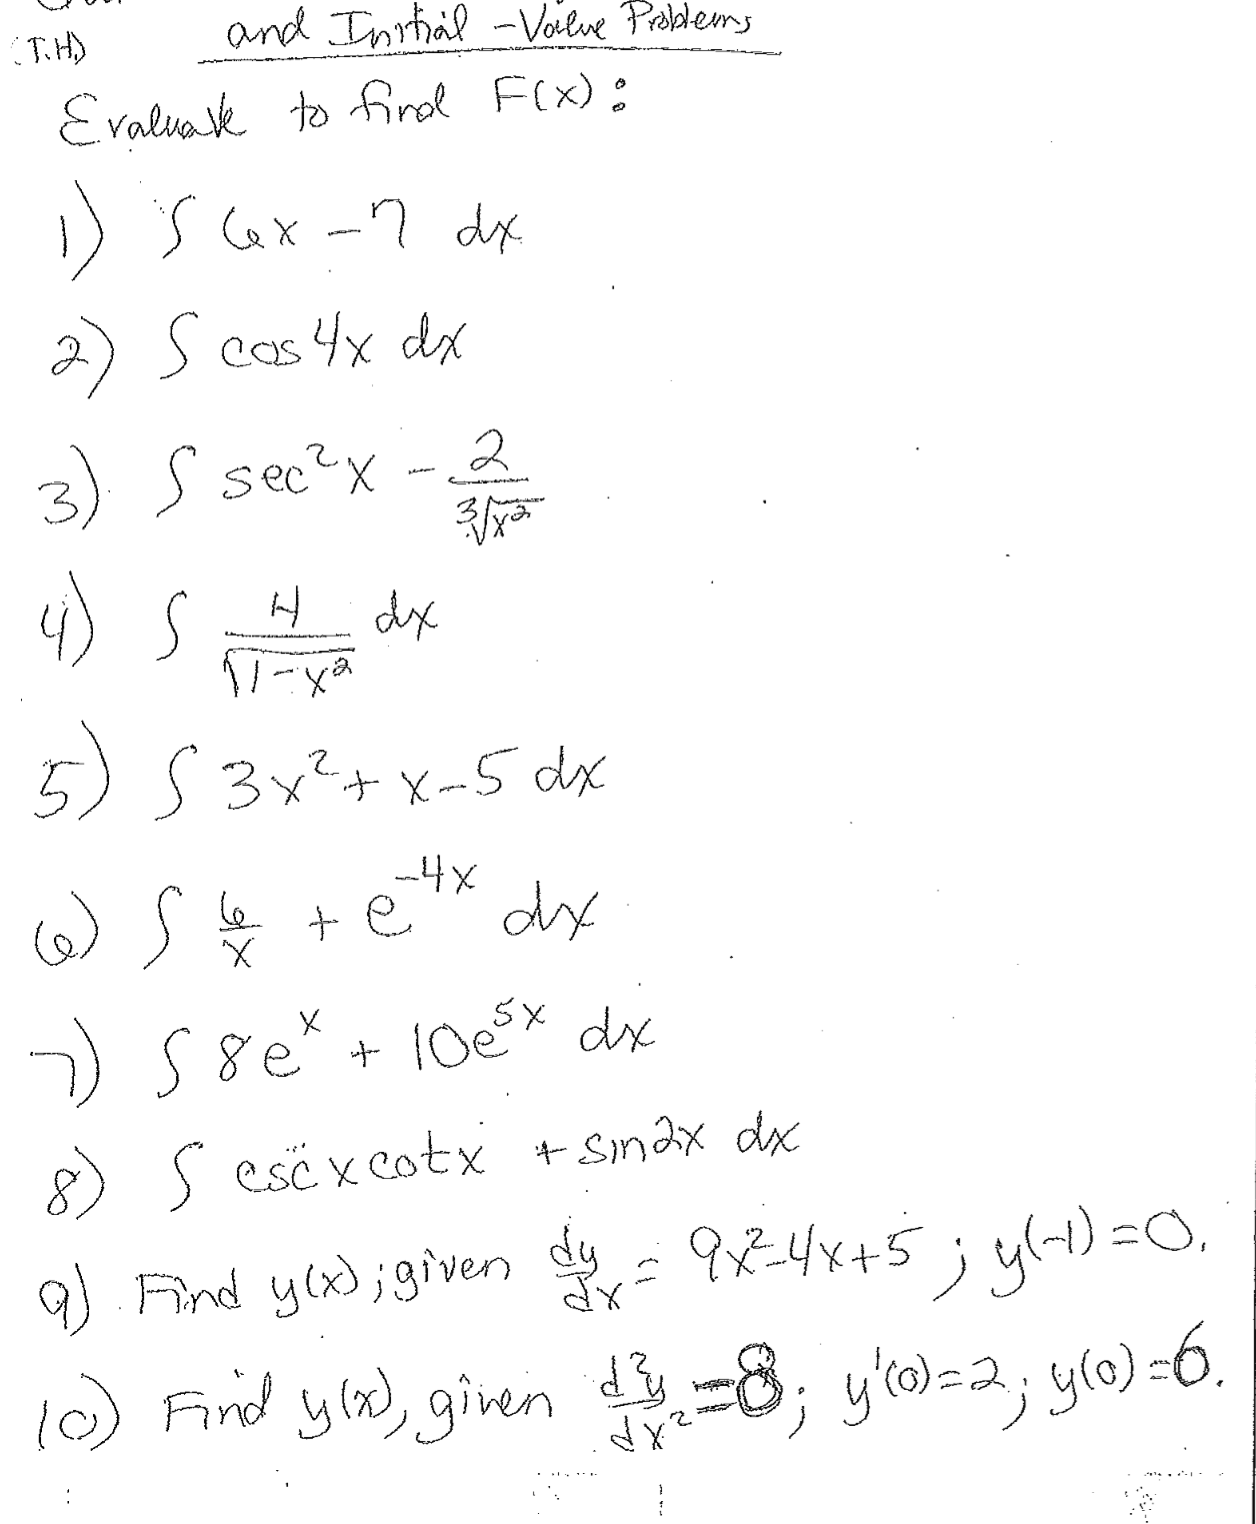 (T.H.)
and Initial-Value Problems
Evaluate to find F(x):
1) ∫ 6x - 7 dx
2) ∫ cos 4x dx
3) ∫ sec²x - 2/∛x²
4) ∫ 4/√1-x² dx
5) ∫ 3x² + x - 5 dx
6) ∫ 6/x + e^-4x dx
7) ∫ 8e^x + 10e^5x dx
8) ∫ csc x cot x + sin2x dx
9) Find y(x); given dy/dx = 9x²-4x+5; y(-1)=0.
10) Find y(x), given d²y/dx² = 8; y'(0)=2; y(0)=6.